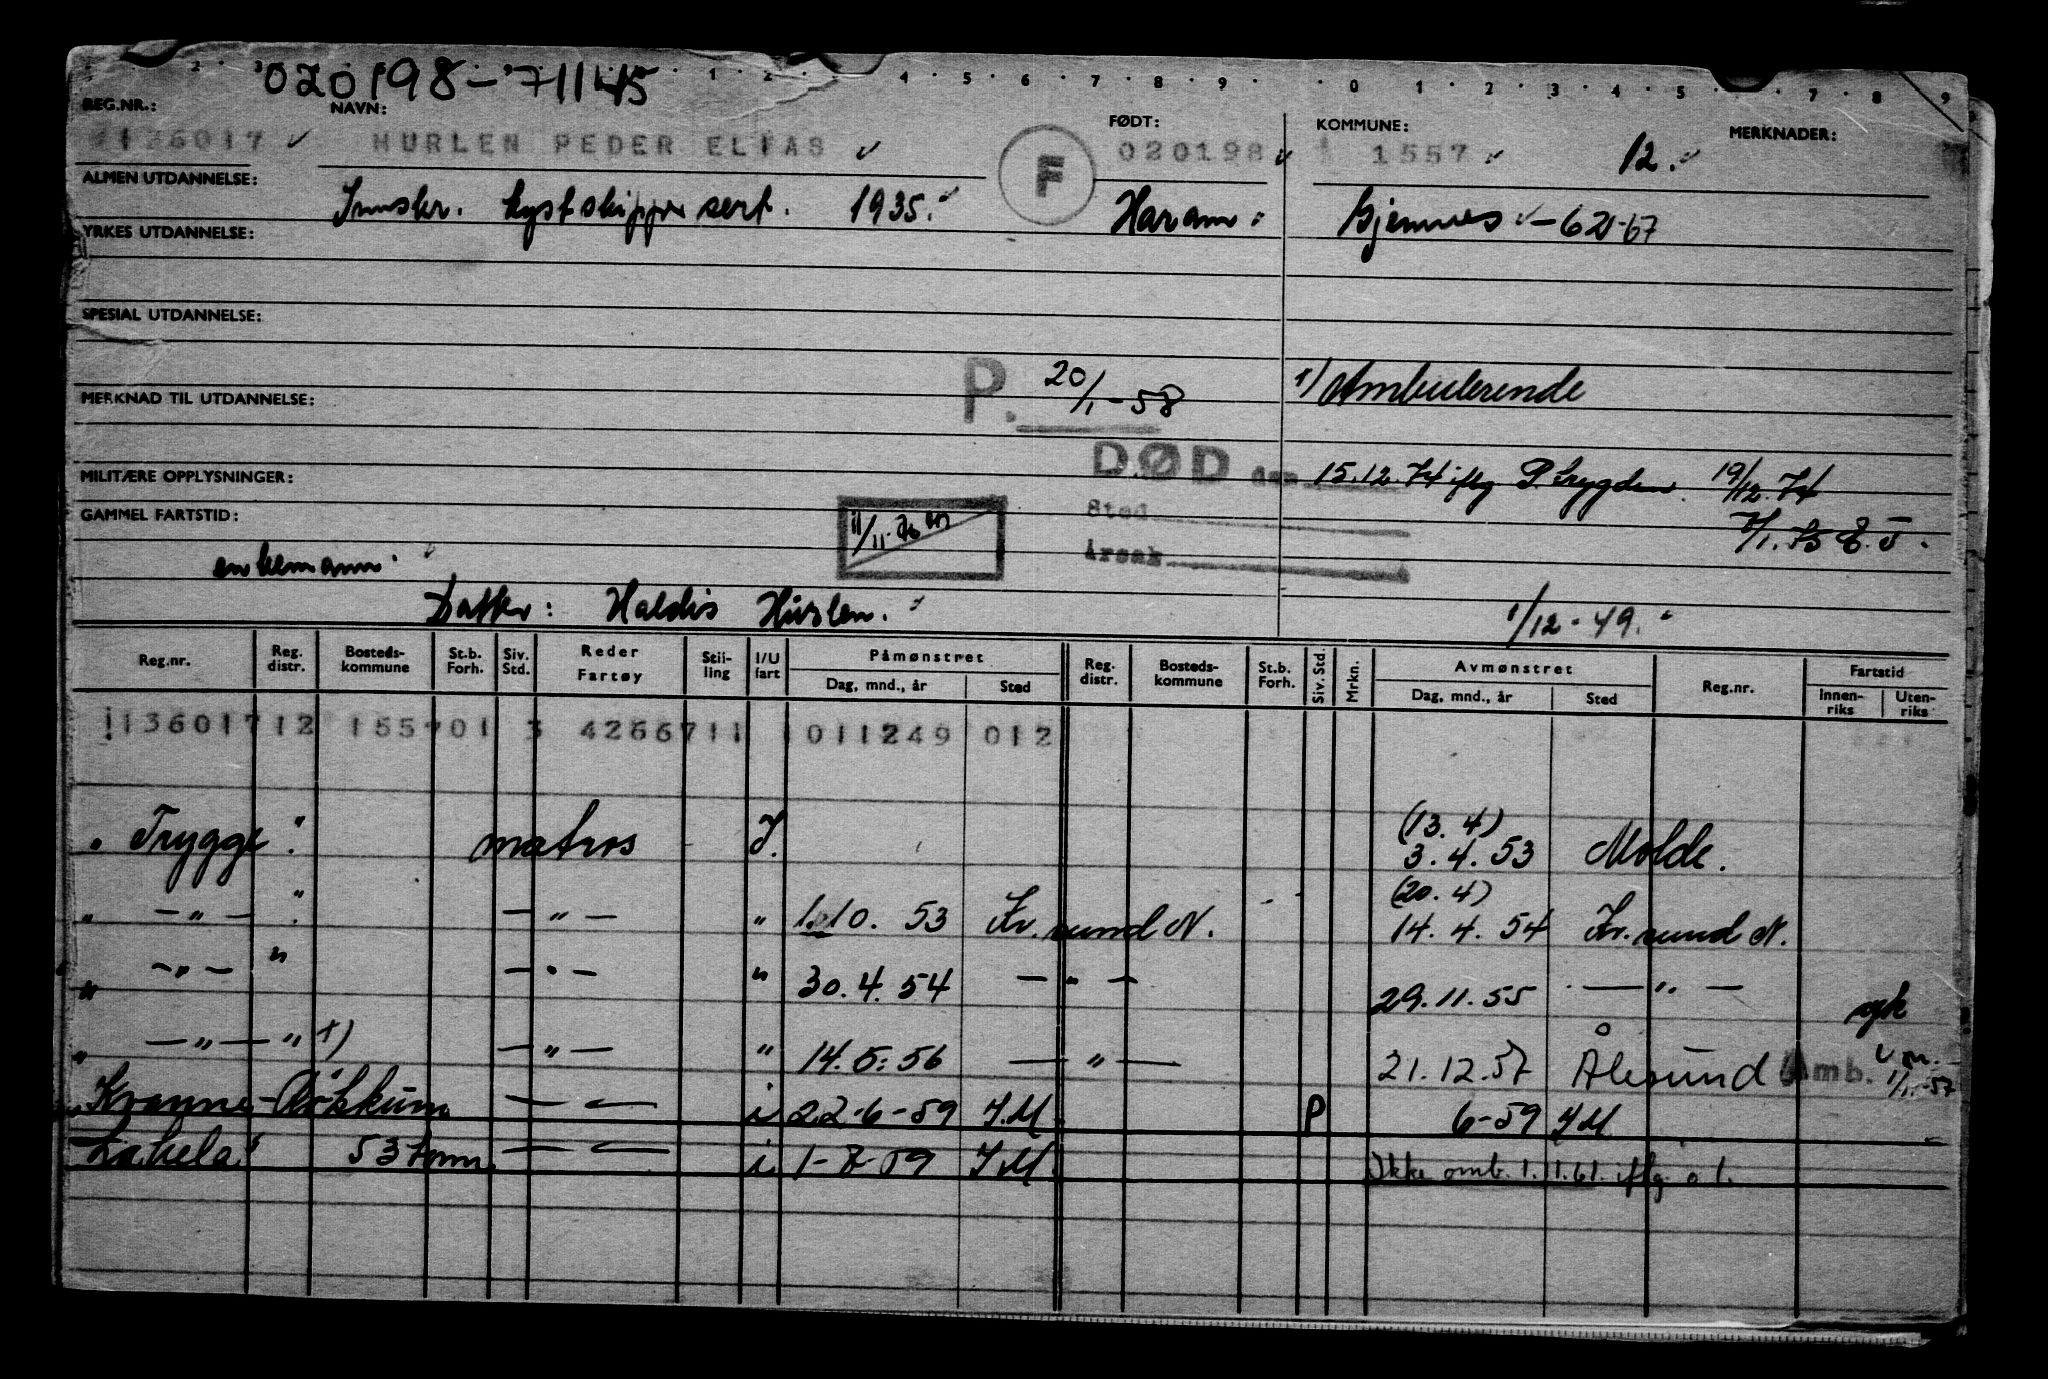 020198-71145
REG.NR.: NAVN: FØDT: KOMMUNE: MERKNADER:
1136017 HURLEN PEDER ELIAS F 020198 1 1557 12.
ALMEN UTDANNELSE: Innskr. kystskippersert. 1935. Haram. Gjemnes - 621-67
YRKES UTDANNELSE:
SPESIAL UTDANNELSE:
P. 20/1-58 1/ Ambulerende
MERKNAD TIL UTDANNELSE:
DØD den 15.12.74 iflg P. trygden 19/12.74
MILITÆRE OPPLYSNINGER:
Sted 7/1.75 E.J.
GAMMEL FARTSTID: 11/11-76
Årsak
enkemann.
Datter: Haldis Hurlen. 1/12-49.
Reg.nr. Reg. distr. Bosteds- kommune St.b. Forh. Siv. Std. Reder Fartøy Still- ling I/U fart Påmønstret Dag, mnd., år Sted Reg. distr. Bosteds- kommune St.b. Forh. Siv. Std. Mrkn. Avmønstret Dag, mnd., år Sted Reg.nr. Fartstid Innen- riks Uten- riks
113601712 155701 3 4266711 1011249 012
(13.4)
" Trygge" matros I. 3.4.53 Molde.
(20.4)
" -"- " -"- " 1.10.53 Kr.sund N. 14.4.54 Kr.sund N.
" -"- " -"- " 30.4.54 -"- 29.11.55 -"- syk
" -"- " 1) -"- " 14.5.56 -"- 21.12.57 Ålesund Amb. 1/1-57
-"- i 22-6-59 I.M P 6-59 IM
53 tonn -"- i 1-7-59 I.M. Ikke omb. 1.11.61. iflg. o l.